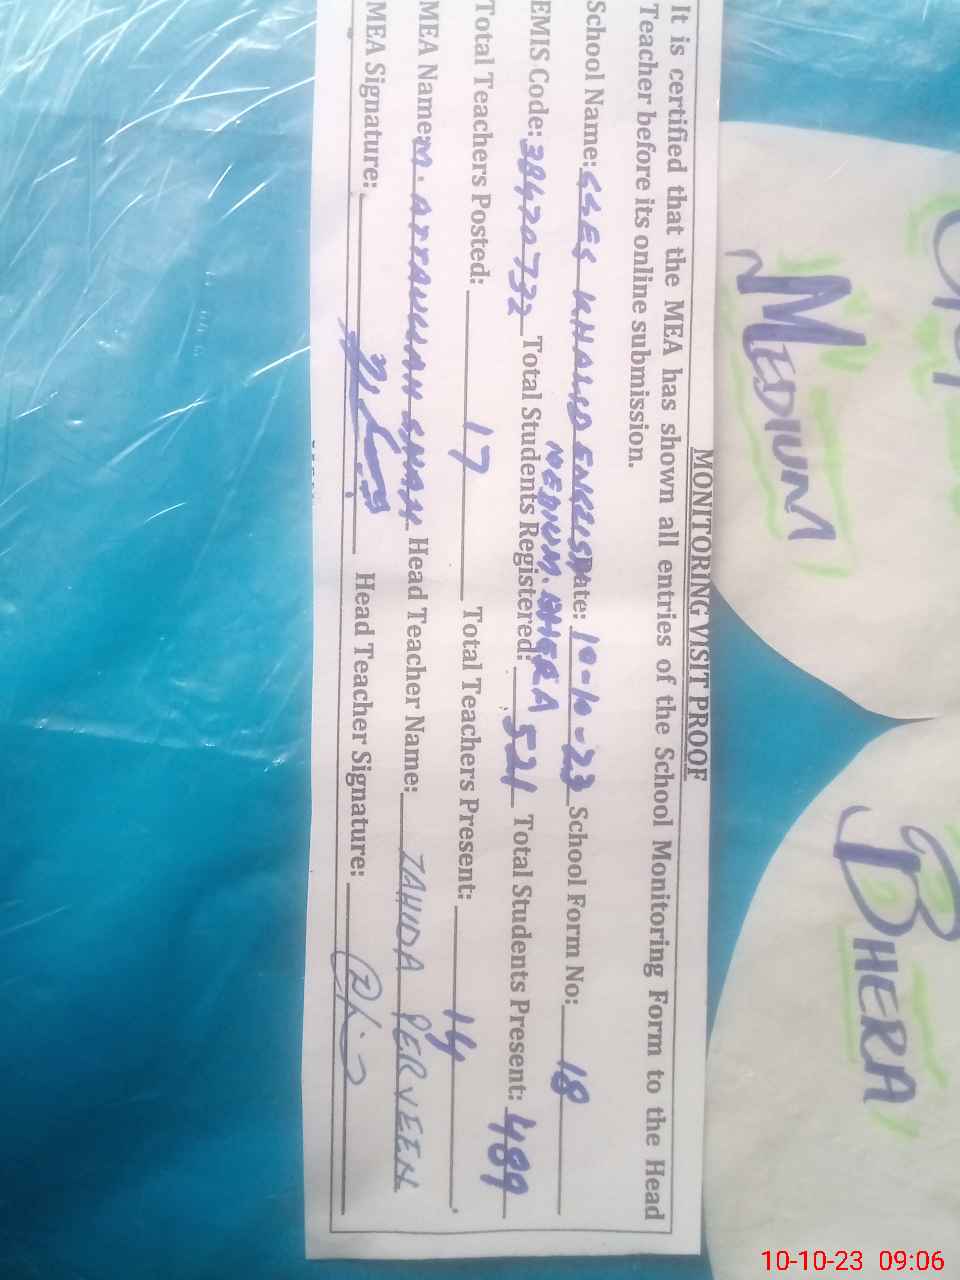 MONITORING VISIT PROOF
It is certified that the MEA has shown all entries of the School Monitoring Form to the Head
Teacher before its online submission.
School Name: GGES KHALID ENGLISH Date: 10-10-23 School Form No: 18
MEDIUM. BHERA
EMIS Code: 38470732 Total Students Registered: 521 Total Students Present: 489
Total Teachers Posted: 17 Total Teachers Present: 14
MEA Name: M. ATTAULLAH SHAH Head Teacher Name: ZAHIDA PERVEEN
MEA Signature: Head Teacher Signature:
MEDIUM
BHERA
10-10-23 09:06